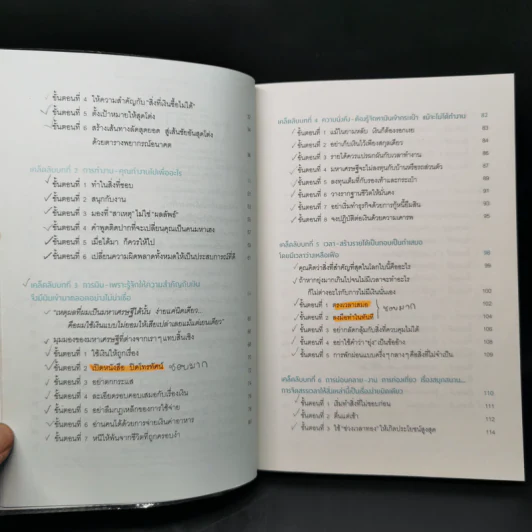 ขั้นตอนที่ 4 ให้ความสำคัญกับ "สิ่งที่เงินซื้อไม่ได้"
ขั้นตอนที่ 5 ตั้งเป้าหมายให้สุดโต่ง
ขั้นตอนที่ 6 สร้างเส้นทางลัดสุดยอด สู่เส้นชัยอันสุดโต่ง
ด้วยตารางพยากรณ์อนาคต
เคล็ดลับบทที่ 2 การทำงาน-คุณทำงานไปเพื่ออะไร
ขั้นตอนที่ 1 ทำในสิ่งที่ชอบ
ขั้นตอนที่ 2 สนุกกับงาน
ขั้นตอนที่ 3 มองที่ "สาเหตุ" ไม่ใช่ "ผลลัพธ์"
ขั้นตอนที่ 4 คำพูดติดปากที่จะเปลี่ยนคุณเป็นคนมหาเฮง
ขั้นตอนที่ 5 เมื่อได้มา ก็ควรให้ไป
ขั้นตอนที่ 6 เปลี่ยนความผิดพลาดทั้งหมดให้เป็นประสบการณ์ที่ดี
เคล็ดลับบทที่ 3 การเงิน-เพราะรู้จักให้ความสำคัญกับเงิน
จึงมีเงินเข้ามาตลอดอย่างไม่น่าเชื่อ
"เหตุผลที่ผมเป็นมหาเศรษฐีได้นั้น ง่ายแค่นิดเดียว...
คือผมใช้เงินแบบไม่ยอมให้เสียเปล่าเลยแม้แต่เยนเดียว"
มุมมองของมหาเศรษฐีที่ต่างจากเราๆ แทบสิ้นเชิง
ขั้นตอนที่ 1 ใช้เงินให้ถูกเรื่อง
ขั้นตอนที่ 2 เปิดหนังสือ ปิดโทรทัศน์ ชอบมาก
ขั้นตอนที่ 3 อย่าตกกระแส
ขั้นตอนที่ 4 ละเอียดรอบคอบเสมอกับเรื่องเงิน
ขั้นตอนที่ 5 อย่าลืมกฎเหล็กของการใช้จ่าย
ขั้นตอนที่ 6 อ่านคนได้ด้วยการจ่ายเงินค่าอาหาร
ขั้นตอนที่ 7 หนีให้พ้นจากชีวิตที่ถูกครอบงำ
เคล็ดลับบทที่ 4 ความมั่งคั่ง-ต้องรู้จักหาเงินเข้ากระเป๋า แม้จะไม่ได้ทำงาน 82
ขั้นตอนที่ 1 แม้ในยามหลับ เงินก็ต้องงอกเงย 83
ขั้นตอนที่ 2 อย่าเก็บเงินไว้เพียงสกุลเดียว 84
ขั้นตอนที่ 3 รายได้ควรแปรผกผันกับเวลาทำงาน
ขั้นตอนที่ 4 มหาเศรษฐีจะไม่ลงทุนกับบ้านหรือรถส่วนตัว
ขั้นตอนที่ 5 ลงทุนเต็มที่กับรองเท้าและกระเป๋า
ขั้นตอนที่ 6 วางรากฐานชีวิตให้มั่นคง
ขั้นตอนที่ 7 อย่าเริ่มทำธุรกิจด้วยการกู้หนี้ยืมสิน
ขั้นตอนที่ 8 จงปฏิบัติต่อเงินด้วยความเคารพ 95
เคล็ดลับบทที่ 5 เวลา-สร้างรายได้เป็นกอบเป็นกำเสมอ
โดยมีเวลาว่างเหลือเฟือ 98
คุณคิดว่าสิ่งที่สำคัญที่สุดในโลกใบนี้คืออะไร
ถ้าหากยุ่งมากเกินไปจนไม่มีเวลาจะทำอะไร
ก็ไม่ต่างอะไรกับการไม่มีเงินนั่นเอง 100
ขั้นตอนที่ 1 ตรงเวลาเสมอ 102
ขั้นตอนที่ 2 ลงมือทำในทันที ชอบมาก 104
ขั้นตอนที่ 3 อย่ากลัดกลุ้มกับสิ่งที่ควบคุมไม่ได้
ขั้นตอนที่ 4 อย่าใช้คำว่า "ยุ่ง" เป็นข้ออ้าง
ขั้นตอนที่ 5 การพักผ่อนแบบครึ่งๆ กลางๆ คือสิ่งที่ไม่จำเป็น
110
ขั้นตอนที่ 1 เริ่มทำสิ่งที่ไม่ชอบก่อน 111
ขั้นตอนที่ 2 ตื่นแต่เช้า 112
ขั้นตอนที่ 3 ใช้ "ช่วงเวลาทอง" ให้เกิดประโยชน์สูงสุด 114